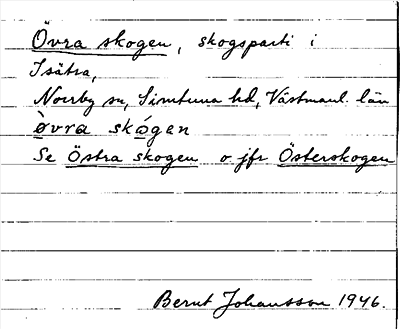 Övra skogen, skogsparti i
Isätra,
Norrby sn, Simtuna hd, Västmanl. län
ø̀vra skǿgen
Se Östra skogen o jfr Österskogen
Bernt Johansson 1946.